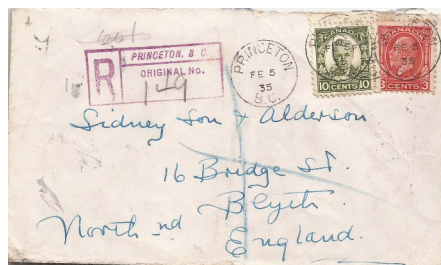 PRINCETON, B.C.
R
ORIGINAL No.
149
PRINCETON
FE 5
35
B.C.
CANADA
10 CENTS 10
CANADA
FE 5
35
3 CENTS 3
Sidney Son & Alderson
16 Bridge St.
Blyth
North nd
England.